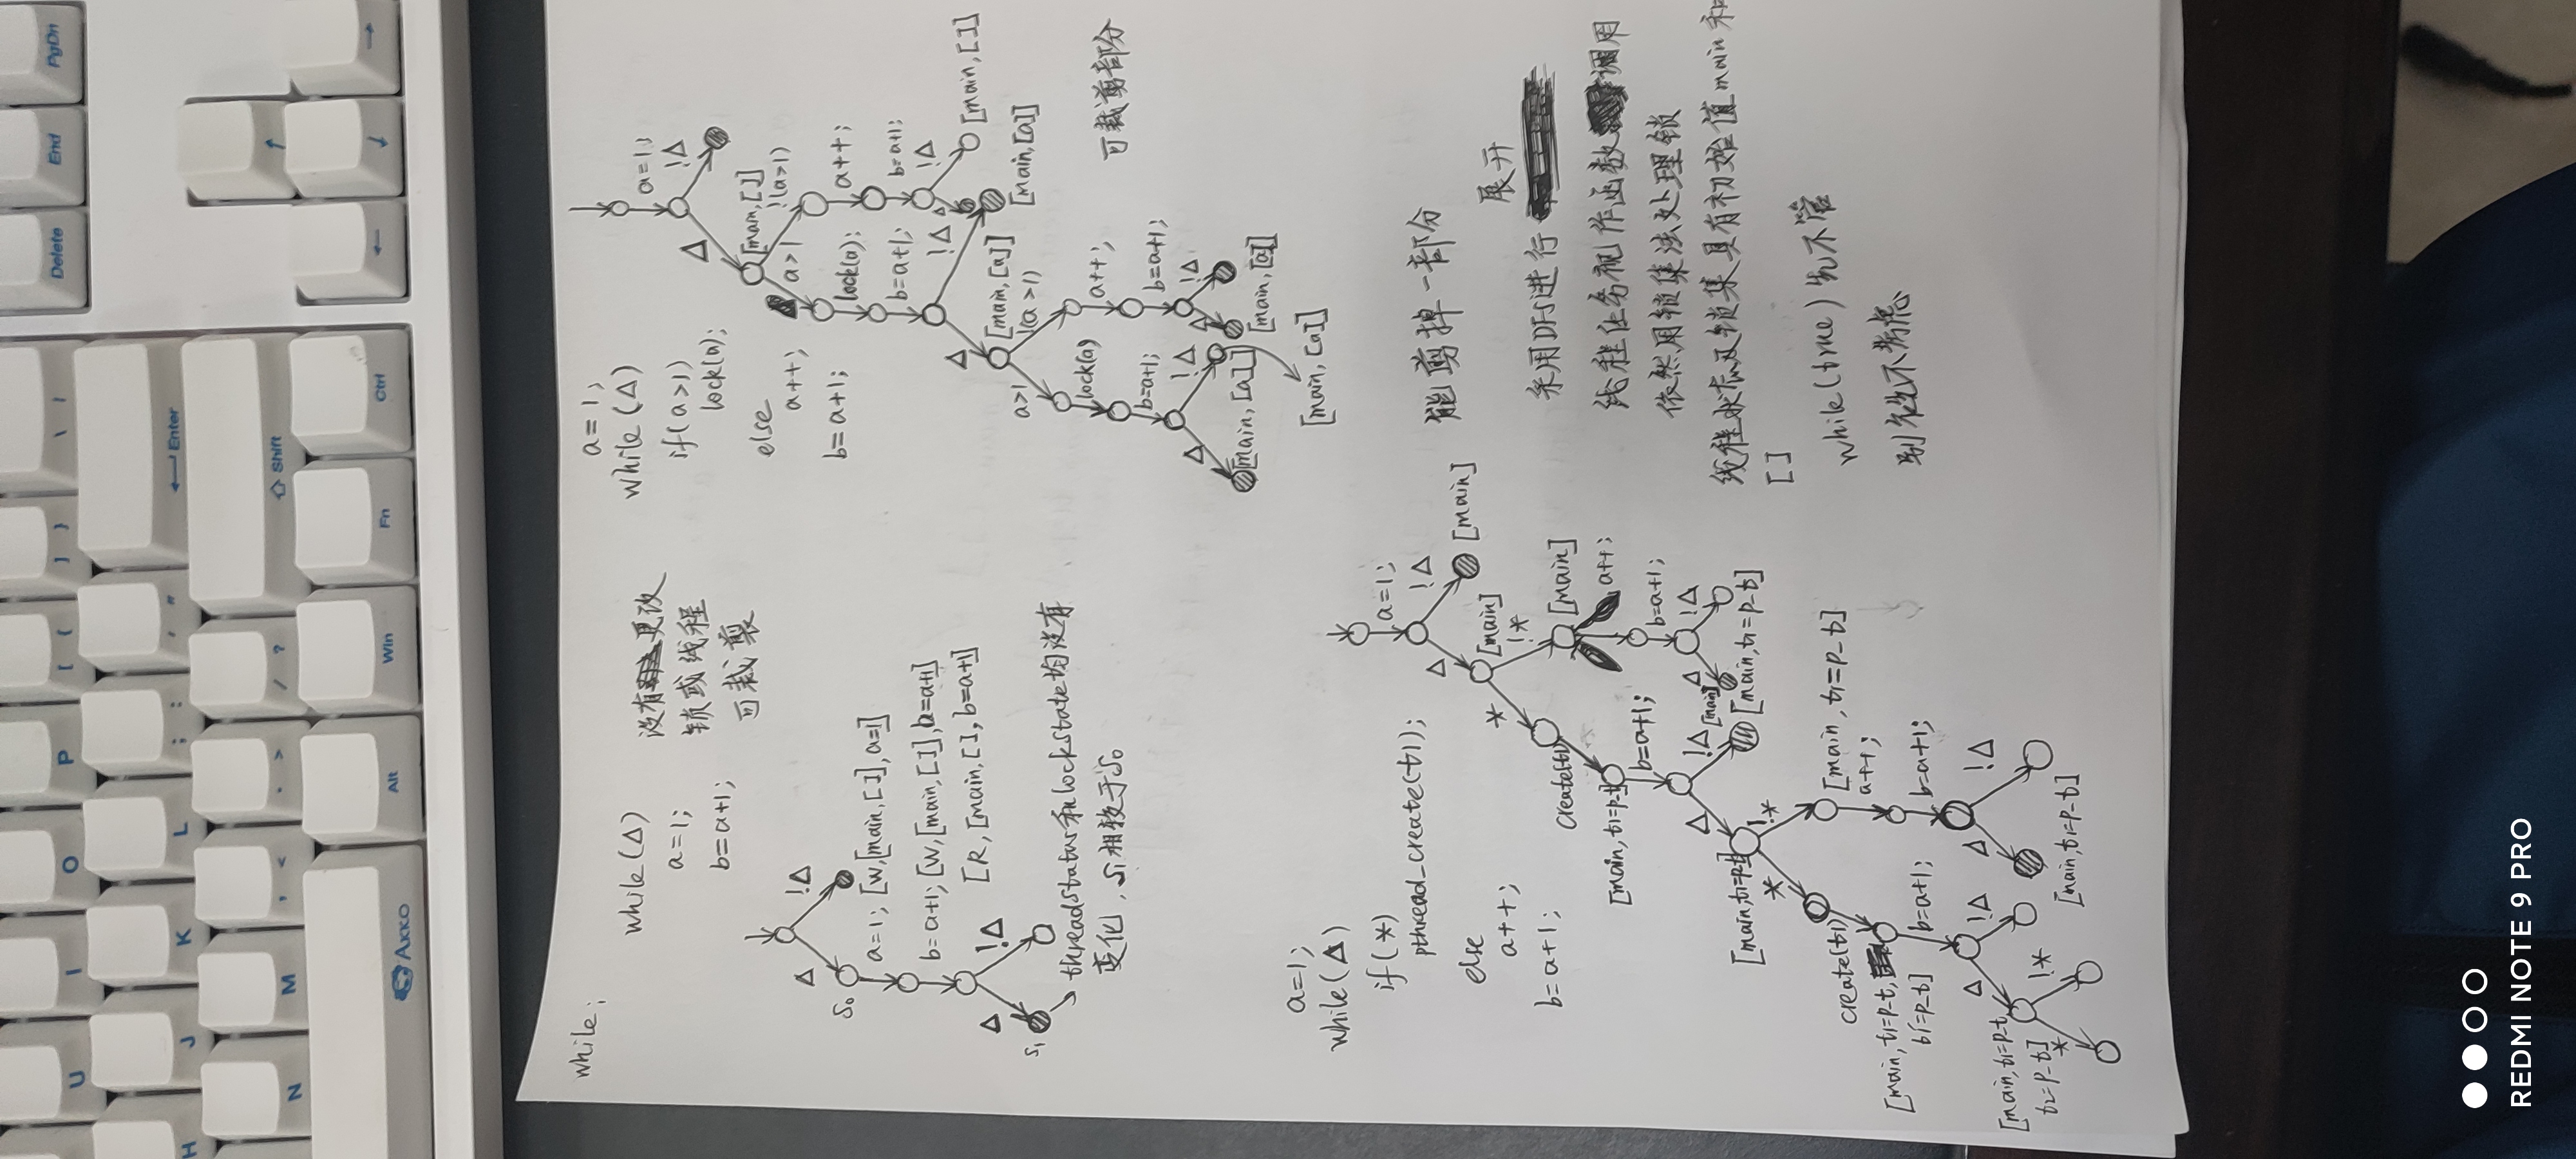 U I O P [ { ] } \ |
Delete End PgDn
H J K L ; : ' " Enter
N M , < . > / ? Shift
AKKO Alt Win Fn Ctrl
while;
while(Δ)
a=1;
b=a+1;
没有更改
锁或线程
可裁剪
Δ !Δ
S₀
a=1; [W,[main,[]],a=1]
b=a+1; [W,[main,[]],b=a+1]
[R,[main,[],b=a+1]
Δ !Δ
S₁
threadstatus和lockstate均没有
变化,S₁相较于S₀
a=1;
while(Δ)
if(a>1)
lock(a);
else
a++;
b=a+1;
a=1;
Δ !Δ
[main,[]]
a>1 !(a>1)
lock(a); a++;
b=a+1; b=a+1;
Δ !Δ Δ !Δ
[main,[]]
[main,[a]] [main,[a]]
a>1 !(a>1)
lock(a) a++;
b=a+1; b=a+1;
Δ !Δ Δ !Δ
[main,[a]] [main,[a]]
[main,[a]]
可裁剪部分
a=1;
while(Δ)
if(*)
pthread_create(t1);
else
a++;
b=a+1;
a=1;
Δ !Δ
[main]
[main]
* !*
create(t1) [main]
a++;
[main,t1=p_t]
b=a+1; b=a+1;
Δ !Δ [main] Δ !Δ
[main,t1=p_t] [main,t1=p_t]
* !*
create(t1) [main,t1=p_t]
a++;
[main,t1=p_t,
b=a+1; b=a+1;
Δ !Δ Δ !Δ
[main,t1=p_t
t2=p_t]
* !*
[main,t1=p_t]
能剪掉一部分
采用DFS进行展开
线程任务视作函数调用
依然用锁集法处理锁
线程状态及锁集具有初始值main和
[]
while(true)先不管
别名先不考虑
REDMI NOTE 9 PRO